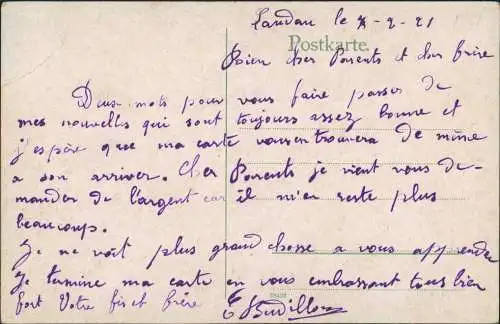 Landau le 4-2-21
Postkarte.
Bien cher Parents et cher frère
Deux mots pour vous faire passer de
mes nouvelles qui sont toujours assez bonne et
j'espère que ma carte vous en trouvera de même
a son arriver. Cher Parents je vient vous de-
mander de l'argent car il m'en reste plus
beaucoup.
Je ne voit plus grand chosse a vous apprendre
Je termine ma carte en vous embrassant tous bien
fort Votre fis et frère